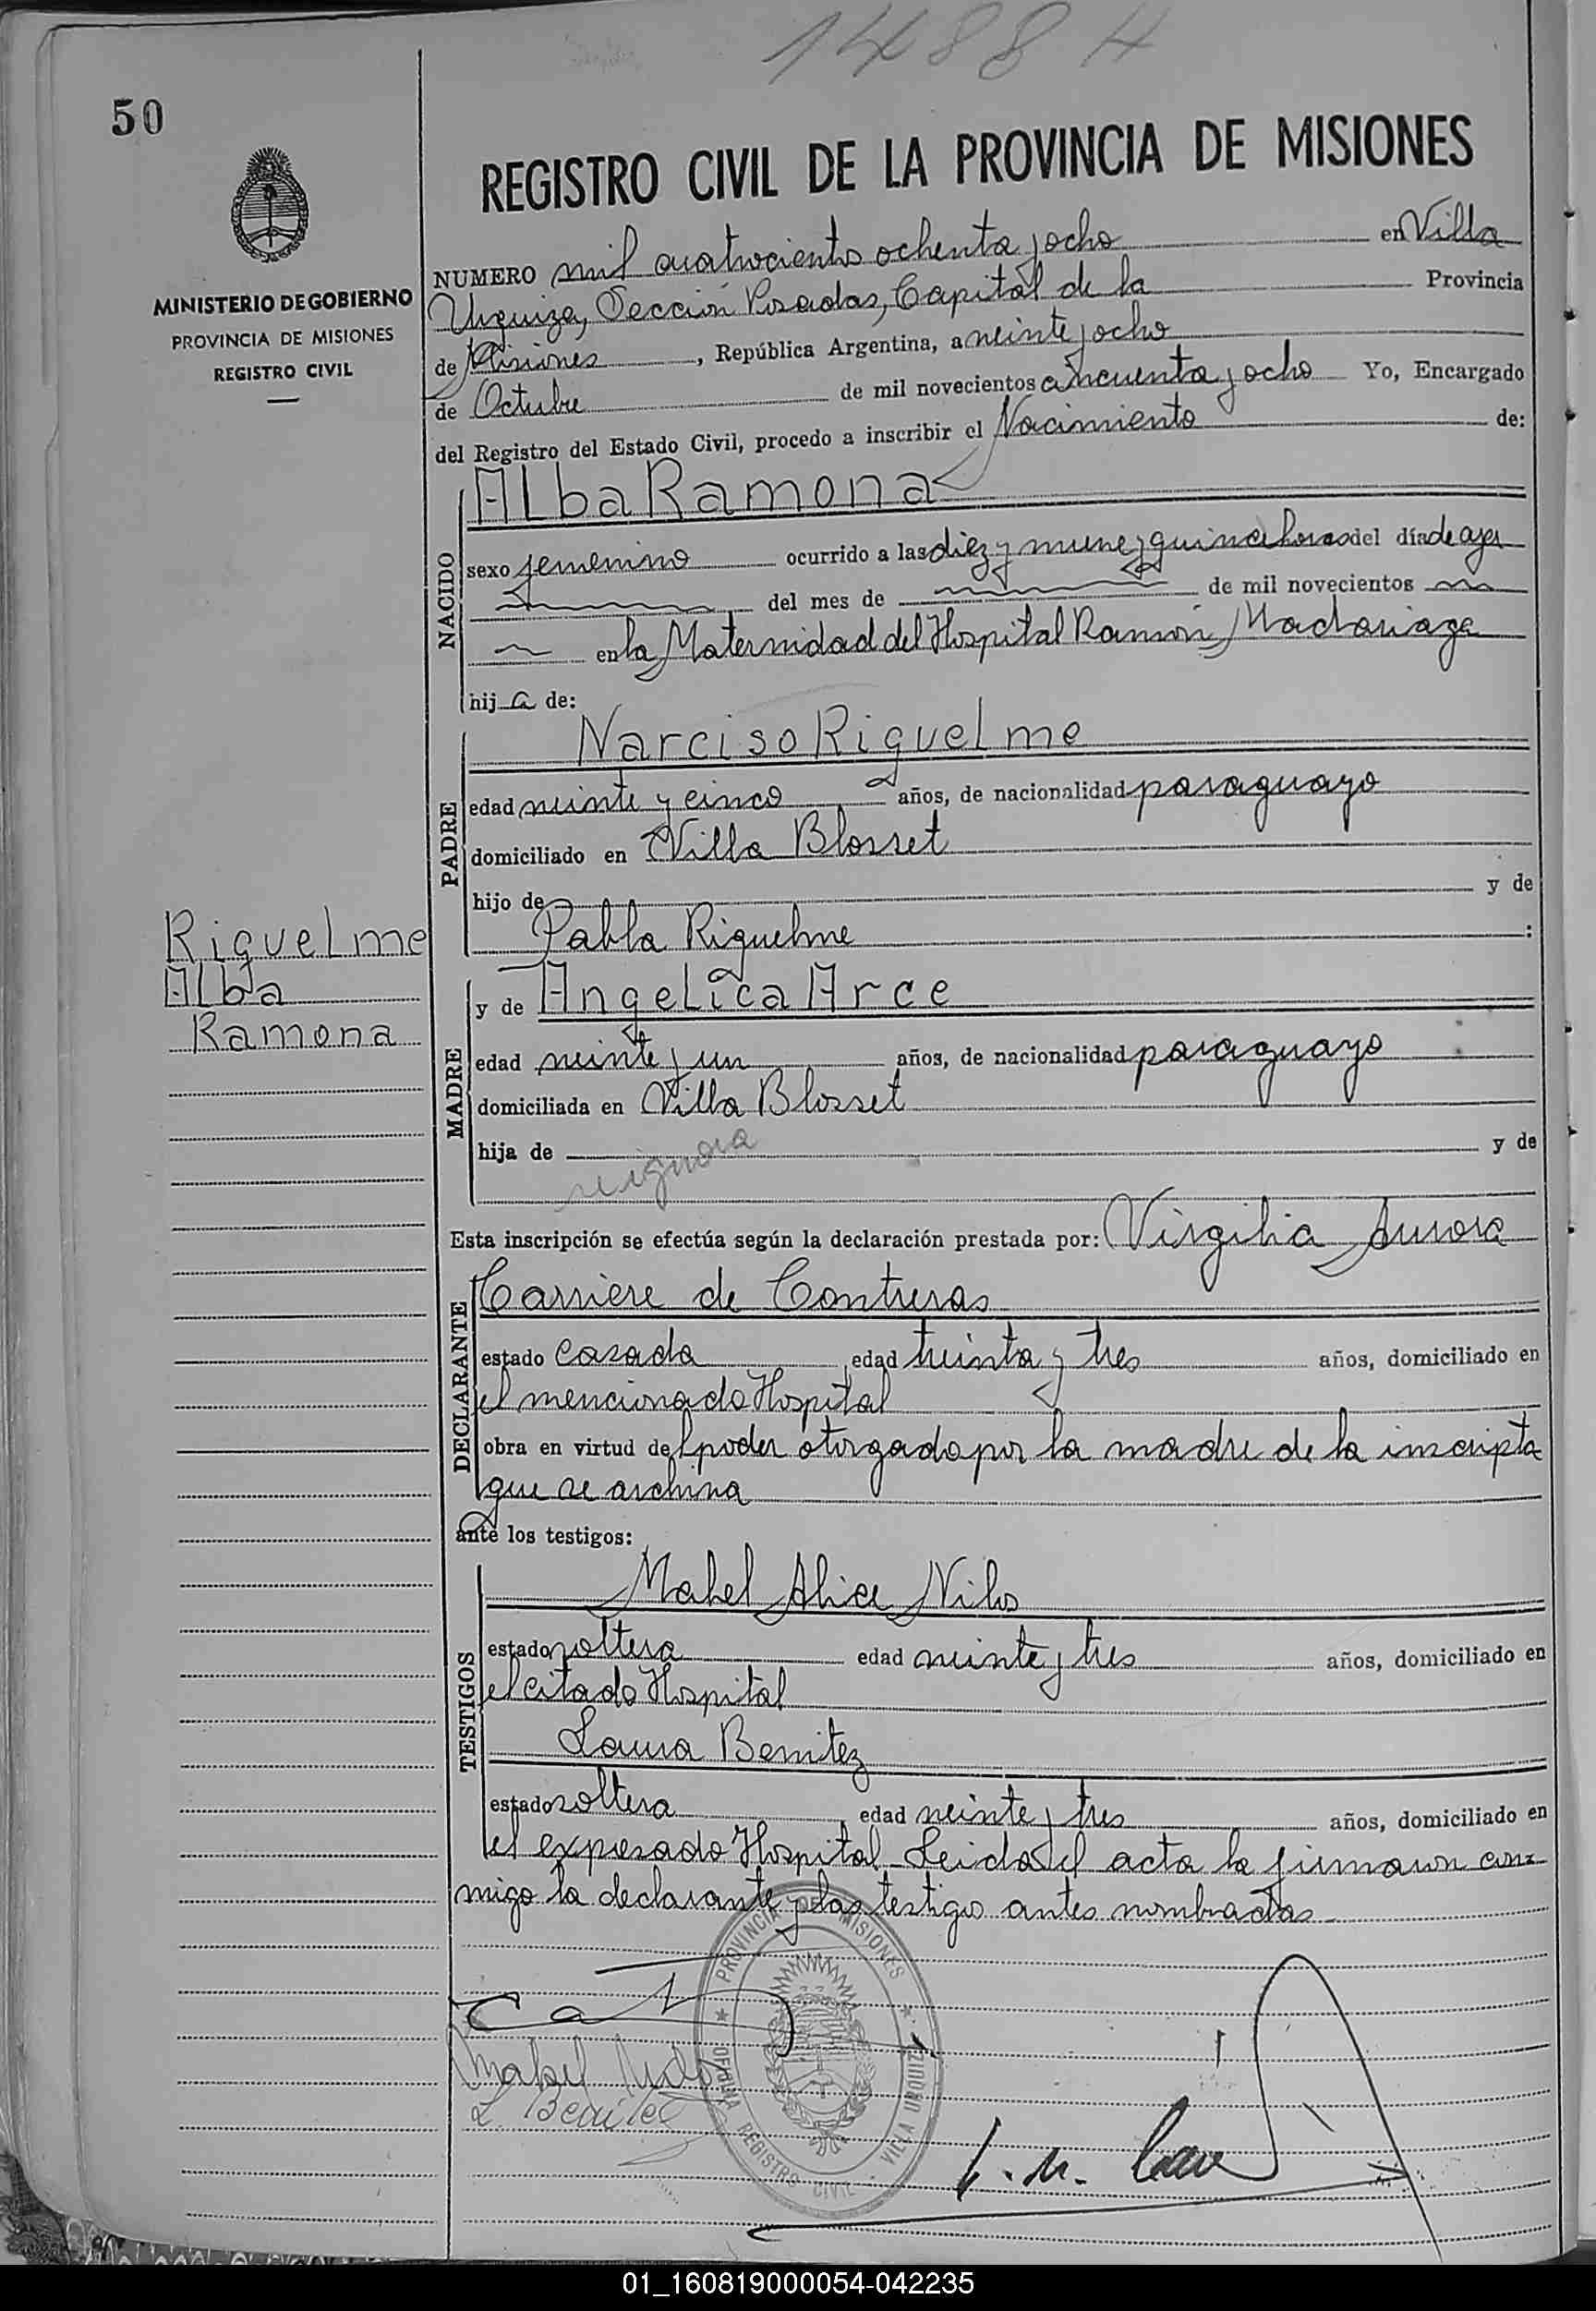 1488 H
50
REGISTRO CIVIL DE LA PROVINCIA DE MISIONES
MINISTERIO DE GOBIERNO
PROVINCIA DE MISIONES
REGISTRO CIVIL
NUMERO mil cuatrocientos ochenta y ocho en Villa
Urquiza, Sección Posadas, Capital de la Provincia
de Misiones, República Argentina, a veinte y ocho
de Octubre de mil novecientos cincuenta y ocho Yo, Encargado
del Registro del Estado Civil, procedo a inscribir el Nacimiento de:
NACIDO
Alba Ramona
sexo femenino ocurrido a las diez y nueve y quince horas del día de ayer
del mes de de mil novecientos
en la Maternidad del Hospital Ramón Madariaga
hija de:
PADRE
Narciso Riquelme
edad veinte y cinco años, de nacionalidad paraguayo
domiciliado en Villa Blosset
hijo de y de
Pabla Riquelme :
Riquelme
Alba
Ramona
MADRE
y de Angelica Arce
edad veinte y un años, de nacionalidad paraguayo
domiciliada en Villa Blosset
hija de y de
Esta inscripción se efectúa según la declaración prestada por: Virgilia Aurora
DECLARANTE
Carriere de Contreras
estado casada edad treinta y tres años, domiciliado en
el mencionado Hospital
obra en virtud del poder otorgado por la madre de la inscripta
que se archiva
ante los testigos:
TESTIGOS
Mabel Alice Nilo
estado soltera edad veinte y tres años, domiciliado en
el citado Hospital
Laura Benitez
estado soltera edad veinte y tres años, domiciliado en
el expresado Hospital Leida el acta la firmaron con
migo la declarante y las testigos antes nombradas
PROVINCIA DE MISIONES
OFICINA REGISTRO CIVIL - VILLA URQUIZA
Mabel
L. Benitez
01_160819000054-042235